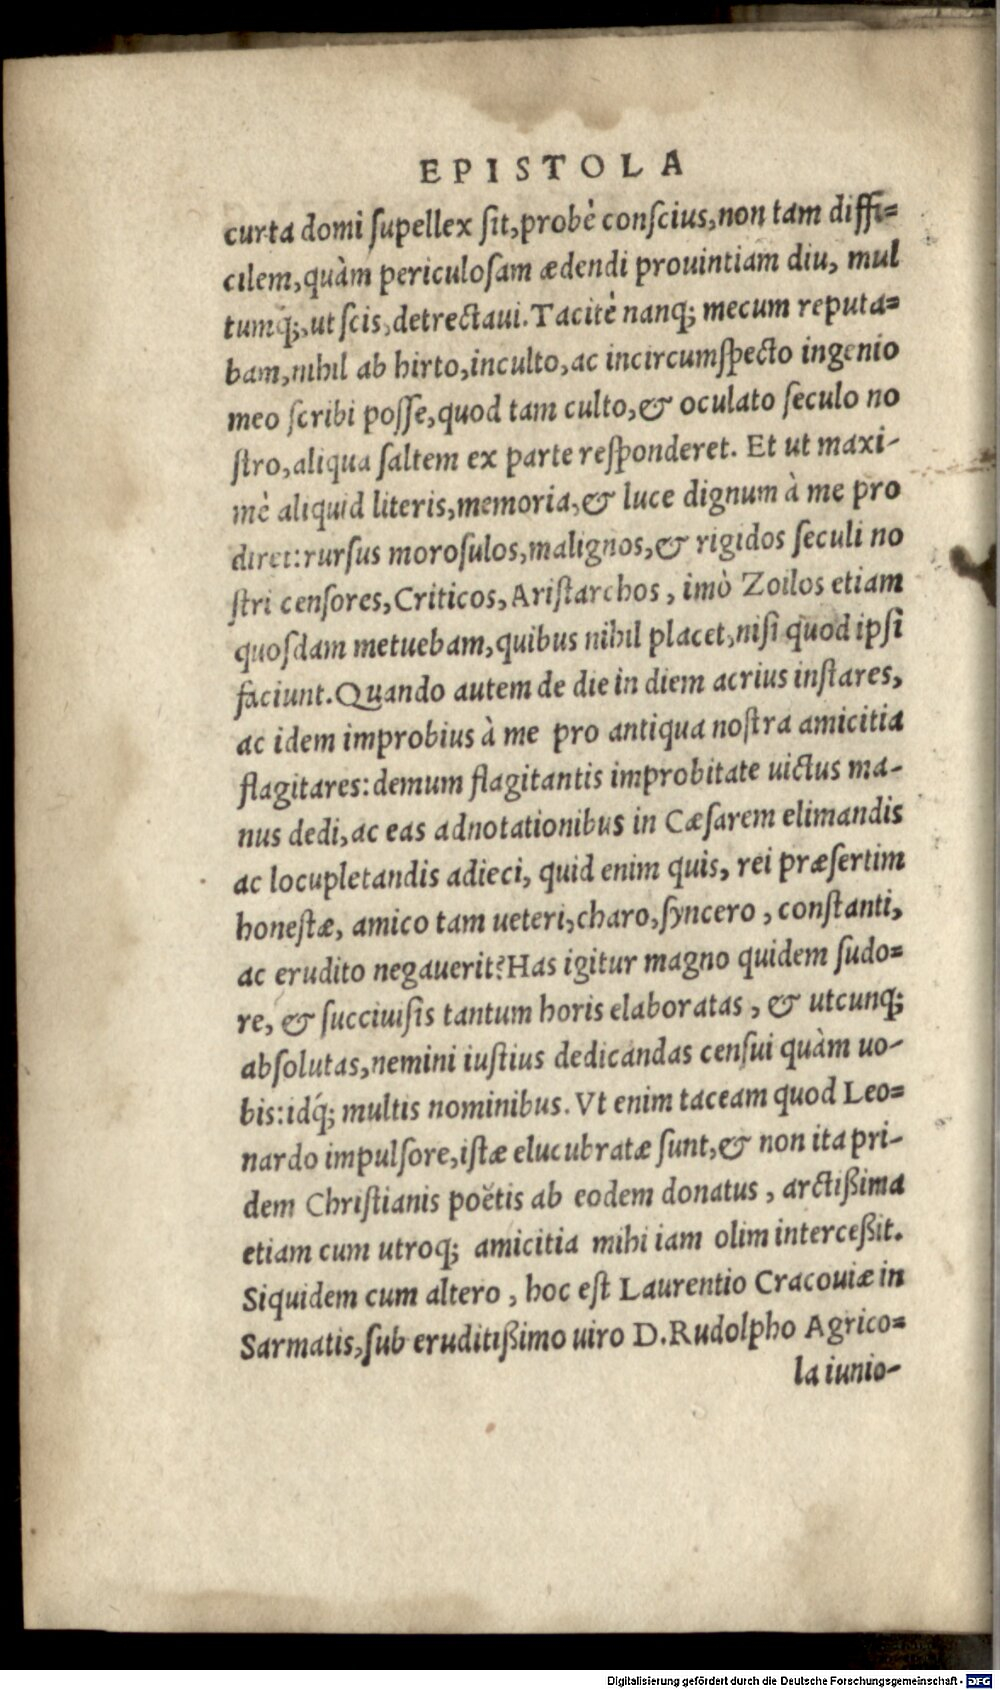 EPISTOLA
curta domi ſupellex ſit,probè conſcius,non tam diffi=
cilem,quàm periculoſam ædendi prouintiam diu, mul
tumq́;,ut ſcis,detrectaui.Tacitè nanq; mecum reputa=
bam,nihil ab hirto,inculto,ac incircumſpecto ingenio
meo ſcribi poſſe,quod tam culto,& oculato ſeculo no
ſtro,aliqua ſaltem ex parte reſponderet. Et ut maxi-
mè aliquid literis,memoria,& luce dignum à me pro
diret:rurſus moroſulos,malignos,& rigidos ſeculi no
ſtri cenſores,Criticos,Ariſtarchos, imò Zoilos etiam
quoſdam metuebam,quibus nihil placet,niſi quod ipſi
faciunt.Quando autem de die in diem acrius inſtares,
ac idem improbius à me pro antiqua noſtra amicitia
flagitares:demum flagitantis improbitate uictus ma-
nus dedi,ac eas adnotationibus in Cæſarem elimandis
ac locupletandis adieci, quid enim quis, rei præſertim
honeſtæ, amico tam ueteri,charo,ſyncero, conſtanti,
ac erudito negauerit?Has igitur magno quidem ſudo=
re, & ſucciuiſis tantum horis elaboratas, & utcunq;
abſolutas,nemini iuſtius dedicandas cenſui quàm uo-
bis:idq́; multis nominibus.Vt enim taceam quod Leo=
nardo impulſore,iſtæ elucubratæ ſunt,& non ita pri-
dem Chriſtianis poëtis ab eodem donatus, arctißima
etiam cum utroq; amicitia mihi iam olim interceßit.
Siquidem cum altero, hoc eſt Laurentio Cracouiæ in
Sarmatis,ſub eruditißimo uiro D.Rudolpho Agrico=
la iunio-
Digitalisierung gefördert durch die Deutsche Forschungsgemeinschaft - DFG